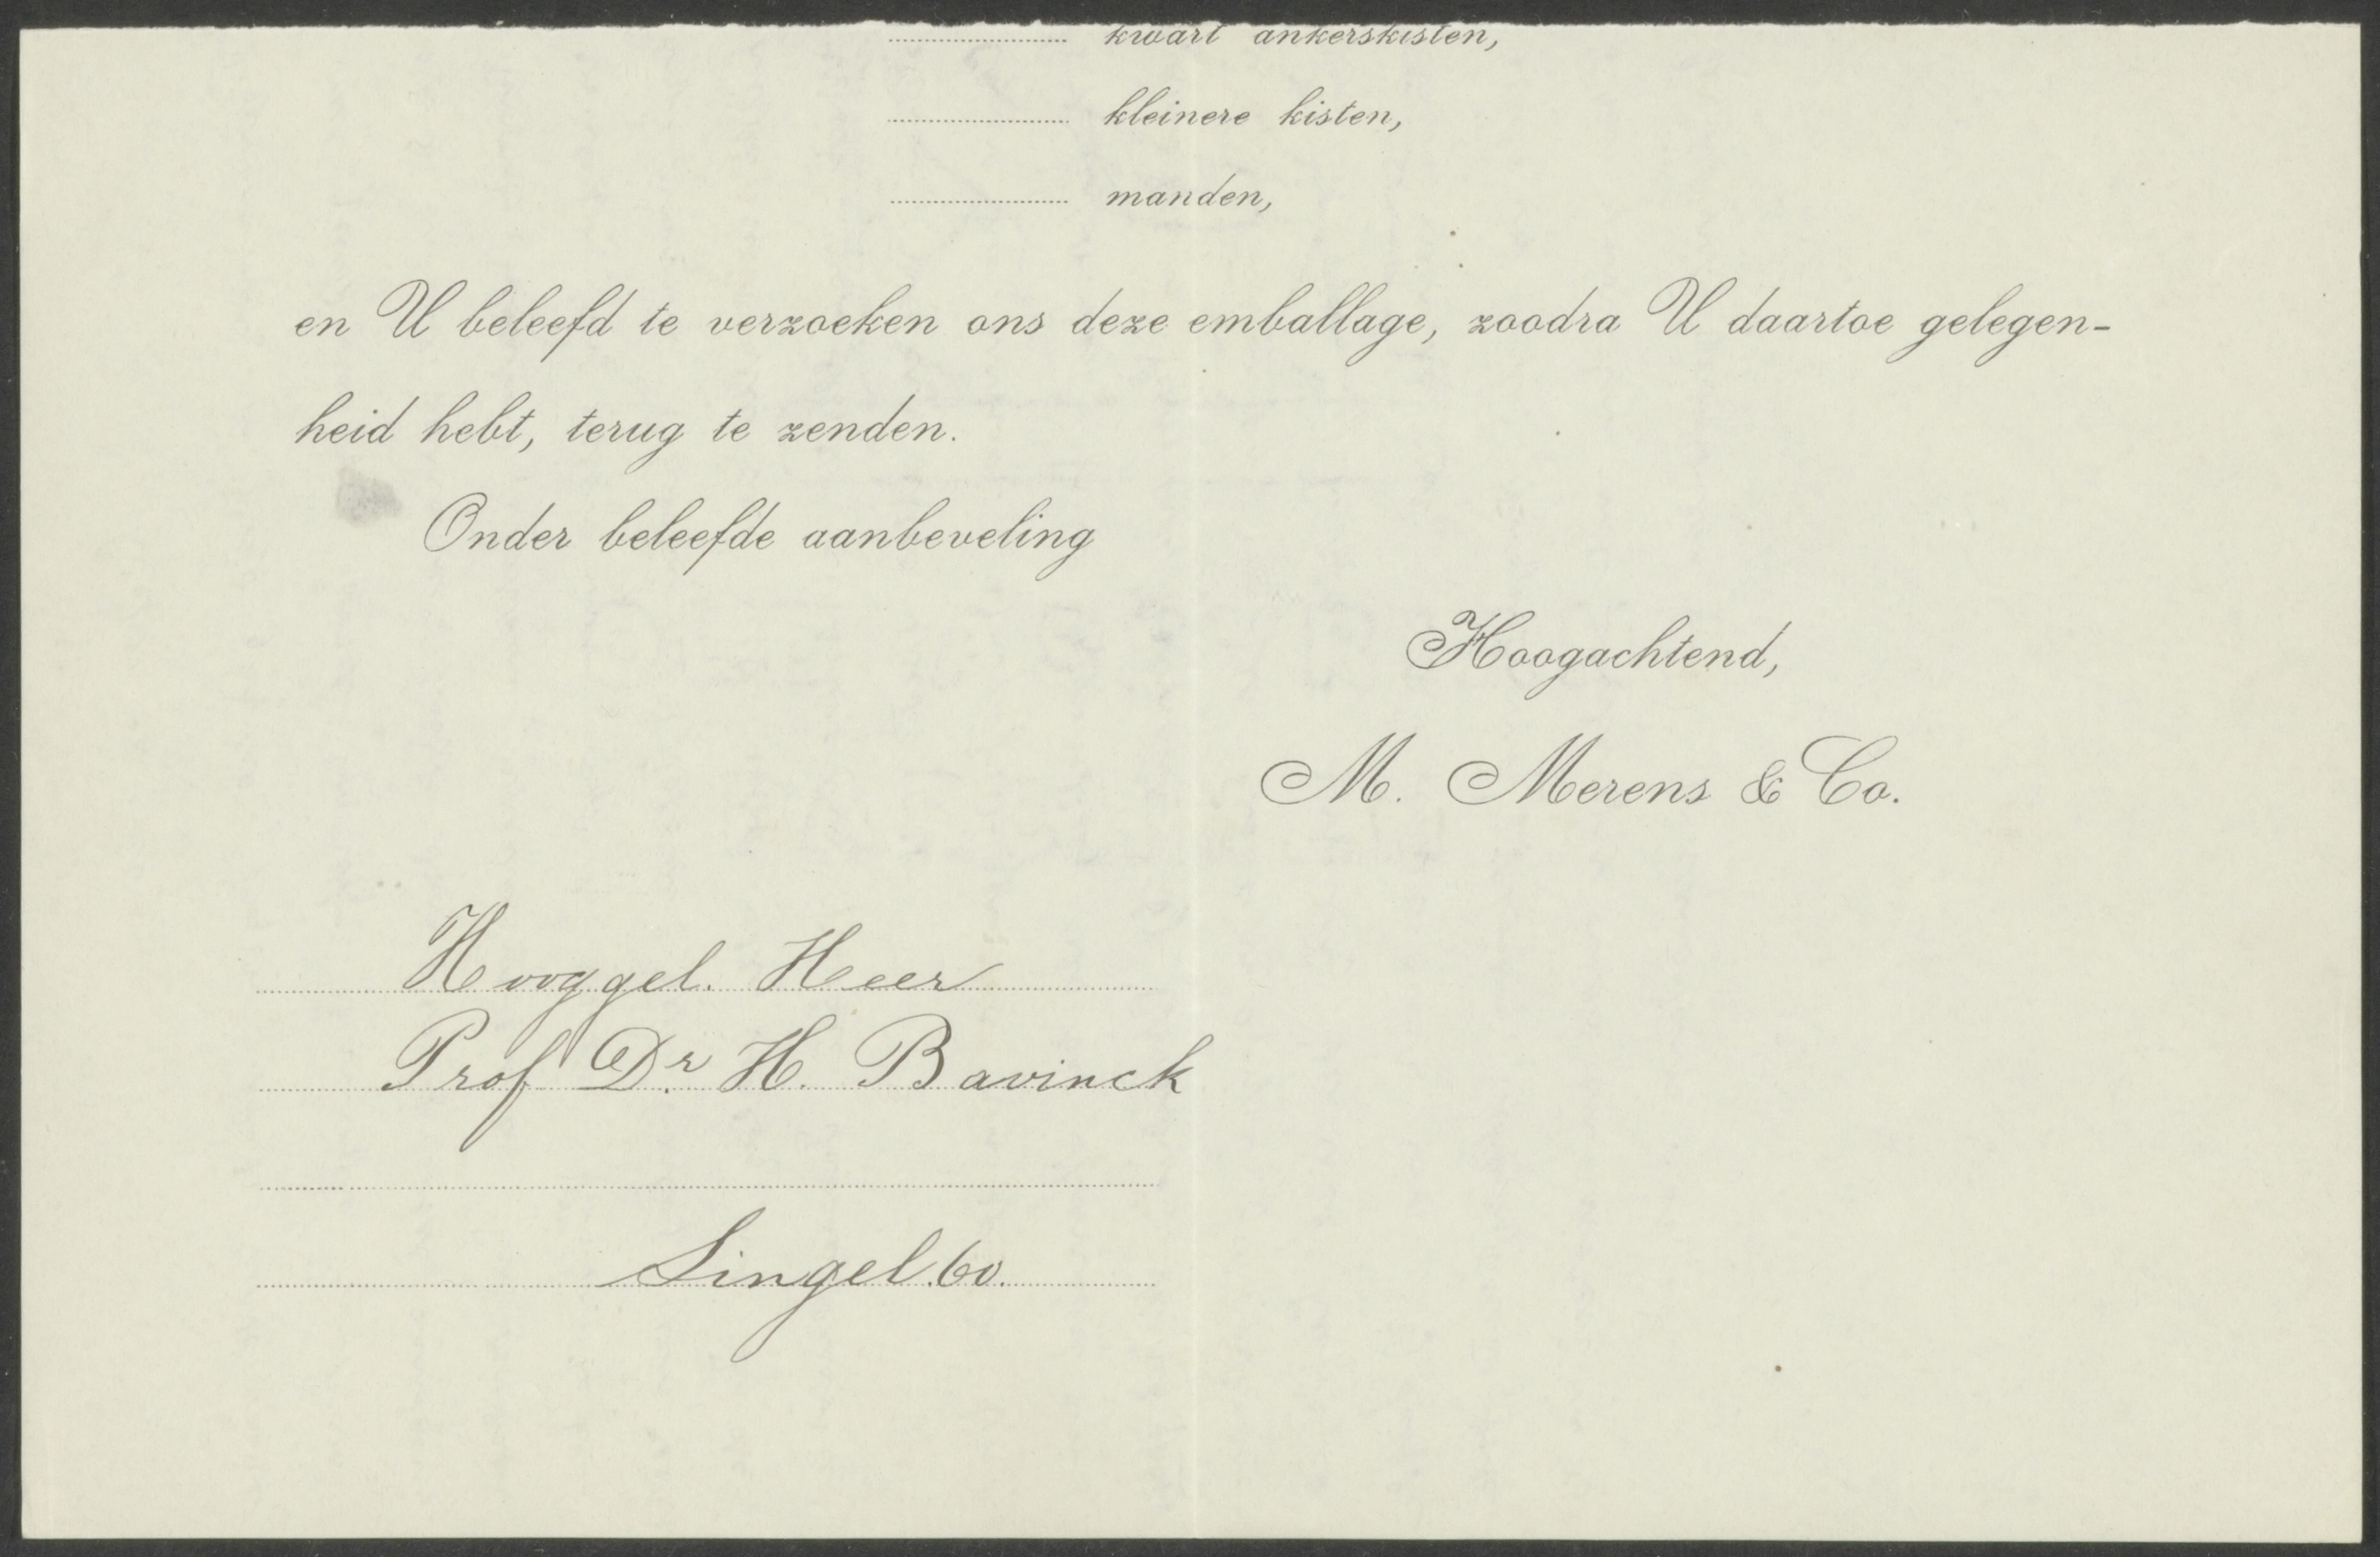 kwart ankerskisten,
kleinere kisten,
manden,
en U beleefd te verzoeken ons deze emballage, zoodra U daartoe gelegen-
heid hebt, terug te zenden.
Onder beleefde aanbeveling
Hoogachtend,
M. Merens & Co.
Hooggel. Heer
Prof Dr. H. Bavinck
Singel.60.